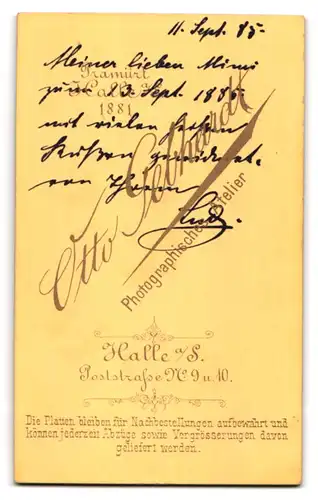 11. Sept. 85.
Meiner lieben Mimi
Prämiirt
Halle
1881
zum 23. Sept. 1885
mit vielen
Küßen gewidmet.
von Ihrem
Otto Gebhardt
Photographisches Atelier
Halle a/S.
Poststraße No 9 u. 10.
Die Platten bleiben für Nachbestellungen aufbewahrt und
können jederzeit Abzüge sowie Vergrösserungen davon
geliefert werden.